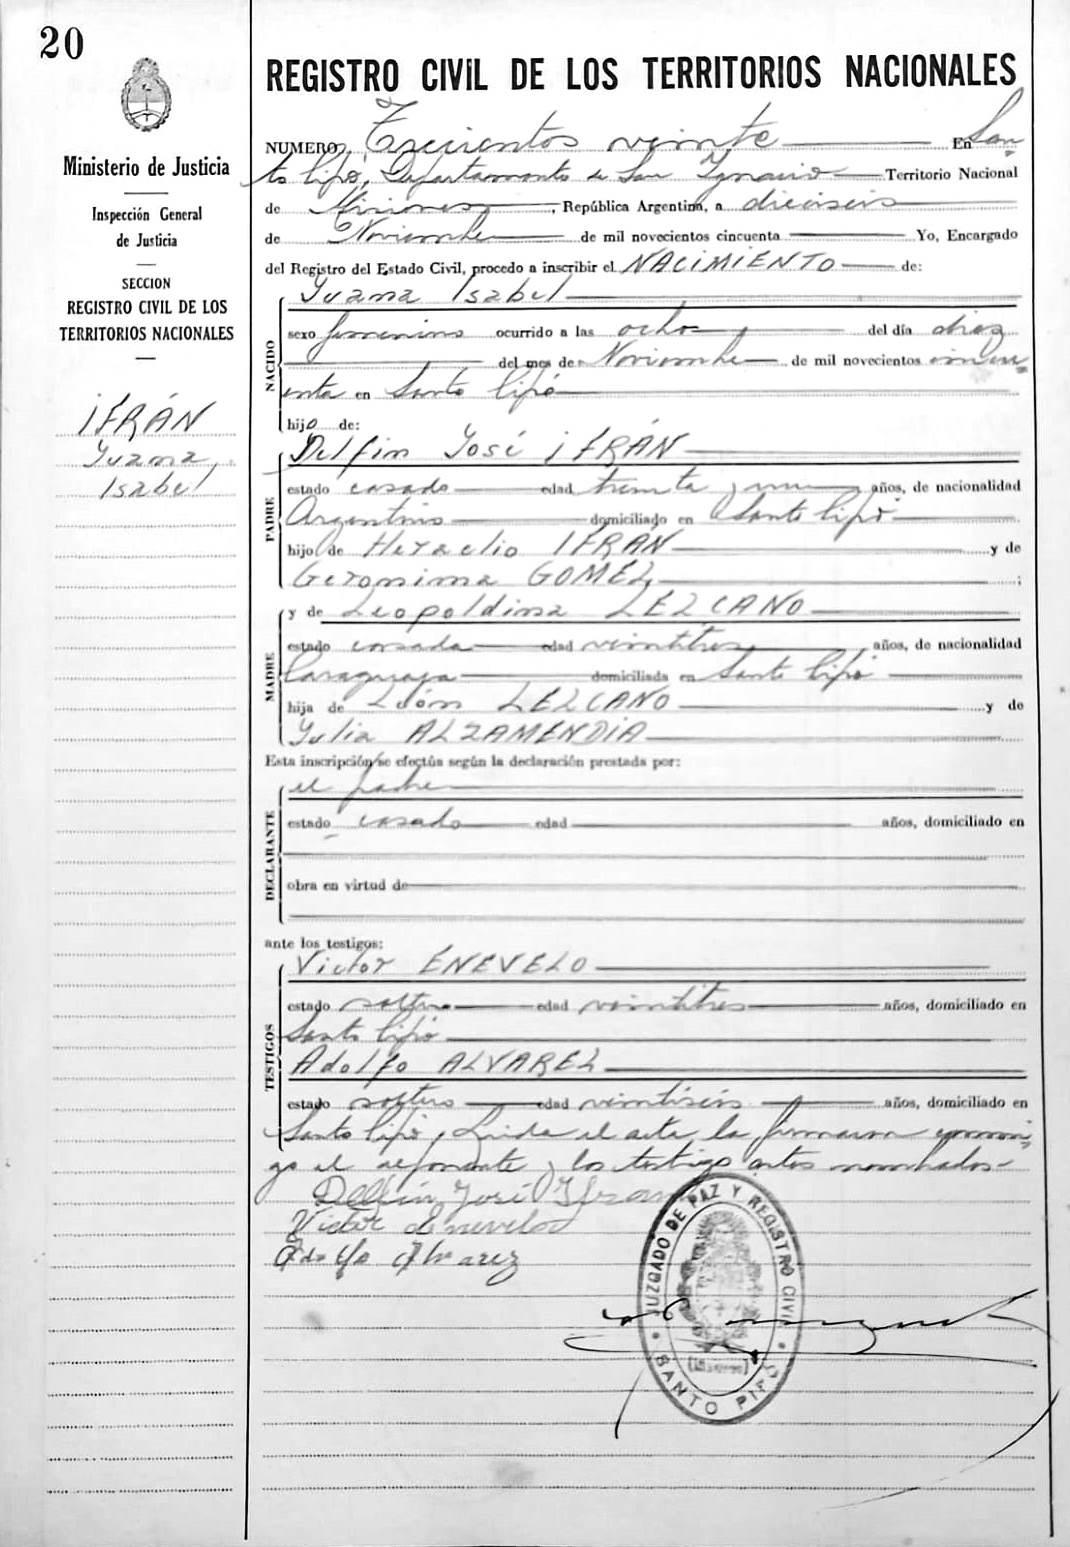 20
Ministerio de Justicia
Inspección General
de Justicia
SECCION
REGISTRO CIVIL DE LOS
TERRITORIOS NACIONALES
IFRÁN
Juana
Isabel
REGISTRO CIVIL DE LOS TERRITORIOS NACIONALES
NUMERO Trecientos veinte En San-
to Pipó, Departamento de San Ignacio Territorio Nacional
de Misiones, República Argentina, a dieciseis
de Noviembre de mil novecientos cincuenta Yo, Encargado
del Registro del Estado Civil, procedo a inscribir el NACIMIENTO de:
NACIDO
Juana Isabel
sexo femenino ocurrido a las ocho del día diez
del mes de Noviembre de mil novecientos cincu=
enta en Santo Pipó
hija de:
PADRE
Delfin José IFRÁN
estado casado edad treinta y un años, de nacionalidad
Argentino domiciliado en Santo Pipó
hijo de Heraclio IFRÁN y de
Geronima GOMEZ;
MADRE
y de Leopoldina LEZCANO
estado casada edad veintitres años, de nacionalidad
Paraguaya domiciliada en Santo Pipó
hija de León LEZCANO y de
Julia ALZAMENDIA
Esta inscripción se efectúa según la declaración prestada por:
DECLARANTE
el padre
estado casado edad años, domiciliado en
obra en virtud de
ante los testigos:
TESTIGOS
Victor ENEVELO
estado soltero edad veintitres años, domiciliado en
Santo Pipó
Adolfo ALVAREZ
estado soltero edad veintiseis años, domiciliado en
Santo Pipó, Leida el acta, la firmaron conmi=
go el deponente y los testigo antes nombrados-
Delfin José Ifran
Victor Enevelo
Adolfo Alvarez
JUZGADO DE PAZ Y REGISTRO CIVIL
(Misiones)
SANTO PIPÓ